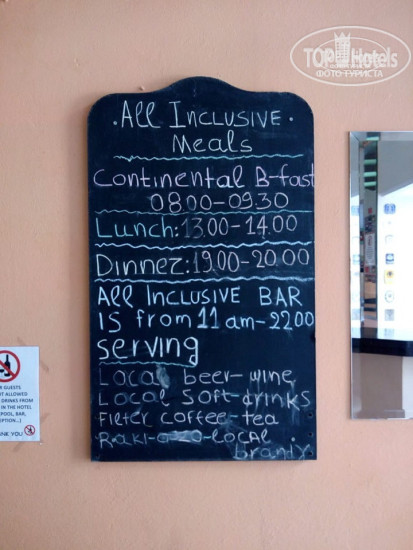 TOPHotels
ФОТО ТУРИСТА
·All Inclusive·
Meals
Continental B-fast
08.00-09.30
Lunch: 13.00-14.00
Dinner: 19.00-20.00
All Inclusive BAR
IS from 11 am-22.00
serving
Local beer-wine
Local Soft-drinks
Filter coffee-tea
Raki- -LOCAL
brandy
GUESTS
ALLOWED
DRINKS FROM
IN THE HOTEL
POOL, BAR,
THANK YOU